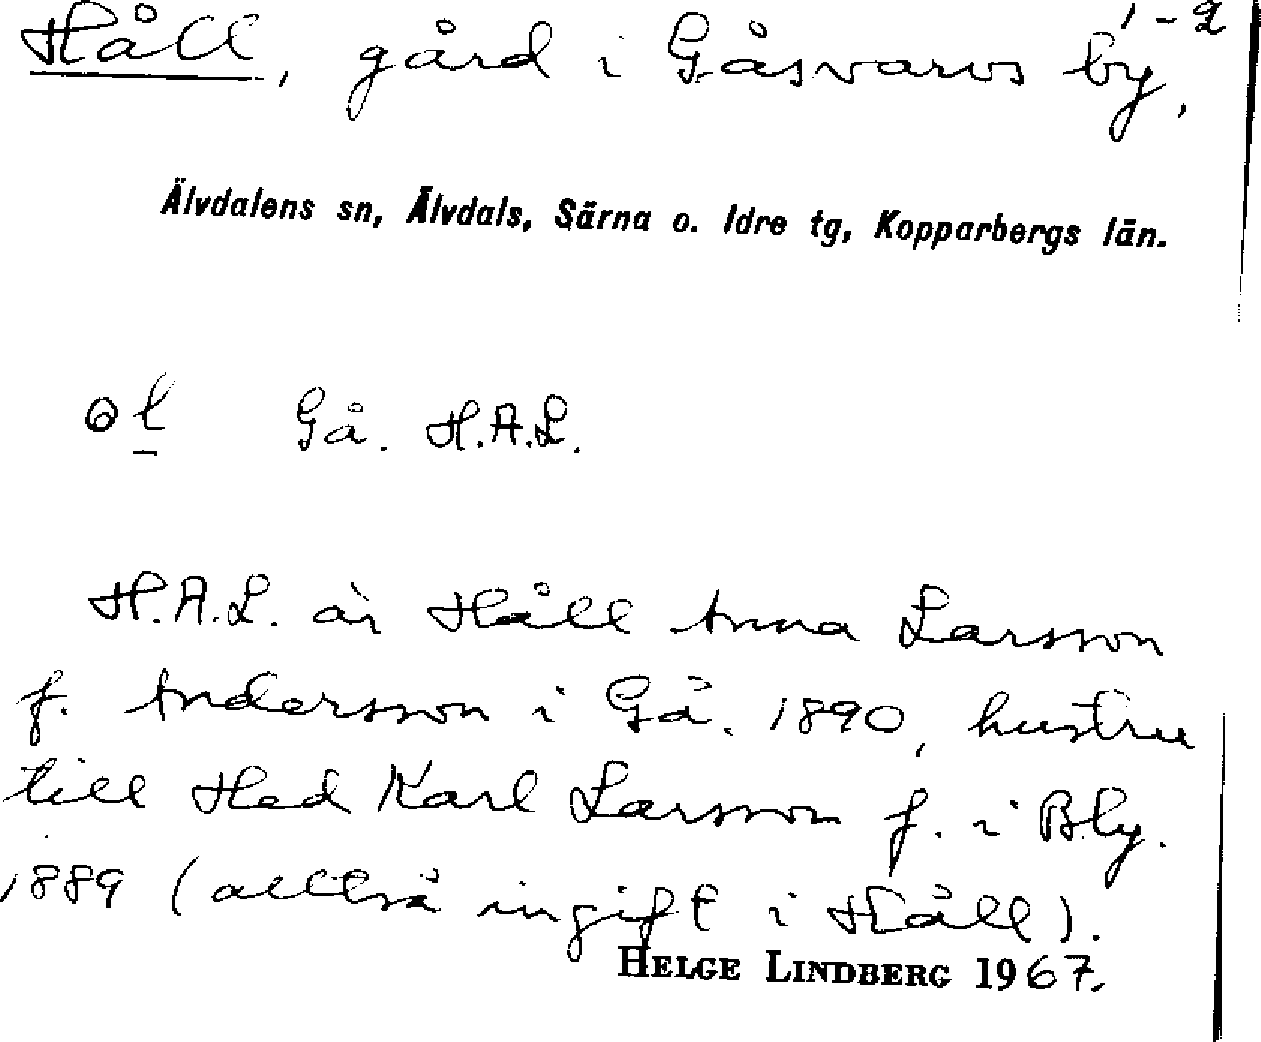 1-2
Håll, gård i Gåsvarvs by,
Älvdalens sn, Älvdals, Särna o. Idre tg, Kopparbergs län.
ol Gå. H.A.L.
H.A.L. är Håll Anna Larsson
f. Andersson i Gå. 1890, hustru
till Hed Karl Larsson f. i Bly.
1889 (alltså ingift i Håll).
HELGE LINDBERG 1967.